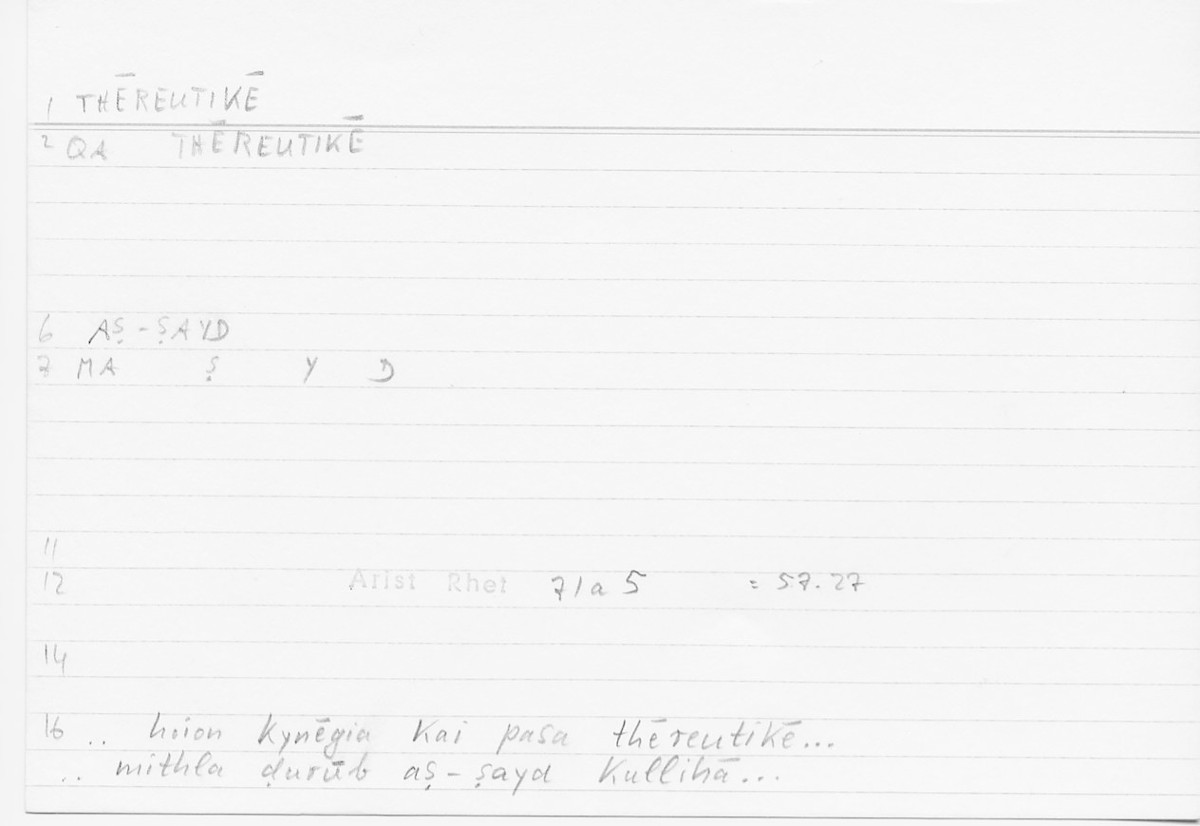 1 THĒREUTIKĒ
2 QA THĒREUTIKĒ
6 AṢ-ṢAYD
7 MA Ṣ Y D
11
12 Arist Rhet 71a5 = 57.27
14
16 .. hoion kynēgia kai pasa thēreutikē...
.. mithla ḍurūb aṣ-ṣayd kullihā...